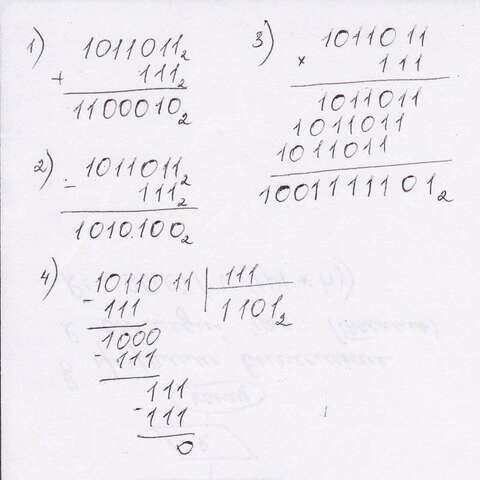 1) 1011011₂
+ 111₂
1100010₂
2) - 1011011₂
111₂
1010100₂
3) 1011011
× 111
1011011
1011011
1011011
1001111101₂
4) - 1011011 | 111
111 | 1101₂
1000
- 111
111
- 111
0